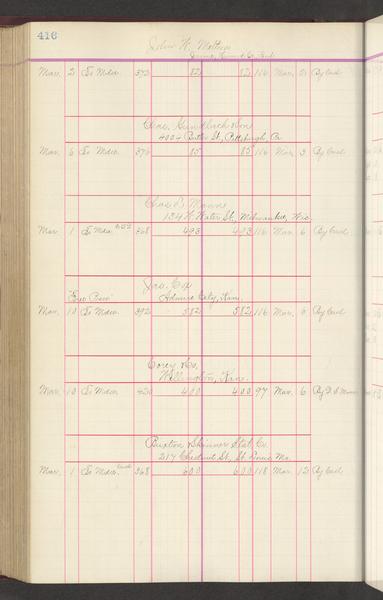 416
John H.
Mar. 2 To Mdse. 373 82 82 116 Mar. By Cash
Chas. Gundlach & Son
4004 Butler St., Pittsburgh, Pa
Mar. 6 To Mdse. 376 85 85 116 Mar. 3 By Cash
Chas. P. Manne
134 W. Water St., Milwaukee, Wis.
Mar. 1 To Mdse. 368 493 493 116 Mar. 6 By Cash
Jas. Cox
Admire City, Kan.
Mar. 10 To Mdse. 392 582 582 116 Mar. 6 By Cash
Corey & Co.
Wellington, Kans.
Mar. 10 To Mdse. 430 400 400 97 Mar. 6 By
Buxton & Skinner Stat. Co.
217 Chestnut St., St. Louis Mo.
Mar. 1 To Mdse. 368 600 600 118 Mar. 12 By Cash